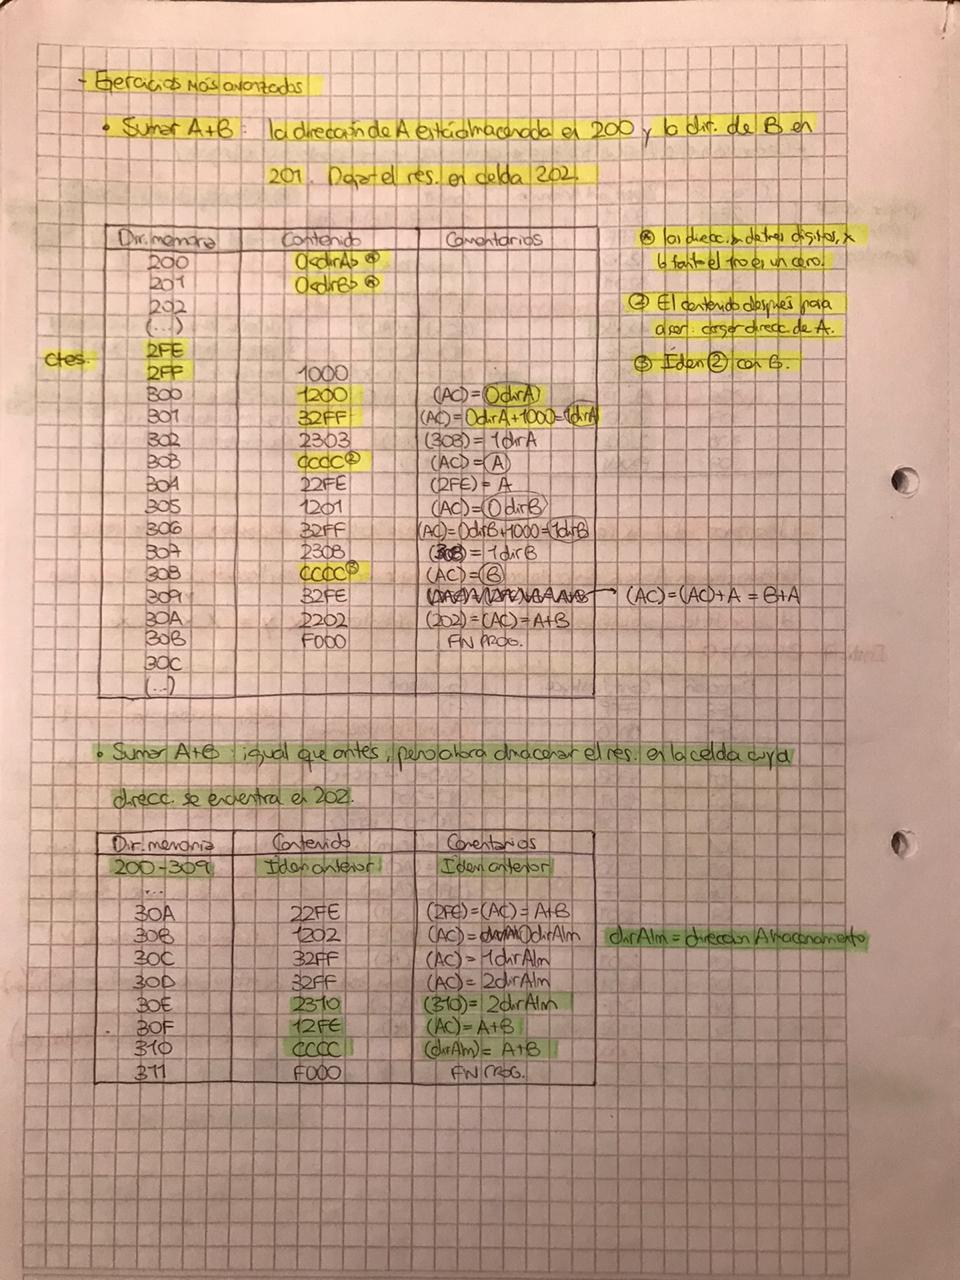 - Ejercicios más avanzados
• Sumar A+B: la dirección de A está almacenada en 200 y la dir. de B en
201. Dejar el res. en celda 202.
Dir. memoria Contenido Comentarios
200 0<dirA> ⊛
201 0<dirB> ⊛
202
(...)
ctes. 2FE
2FF 1000
300 1200 (AC)=0dirA
301 32FF (AC)=0dirA+1000=1dirA
302 2303 (303)=1dirA
303 CCCC② (AC)=A
304 22FE (2FE)=A
305 1201 (AC)=0dirB
306 32FF (AC)=0dirB+1000=1dirB
307 2308 (308)=1dirB
308 CCCC③ (AC)=B
309 32FE → (AC)=(AC)+A=B+A
30A 2202 (202)=(AC)=A+B
30B F000 FIN PROG.
30C
(...)
⊛ las direcc. son de tres dígitos, x
lo tanto el 1ro es un cero.
② El contenido después para
a ser: coger direcc de A.
③ Ídem ② con B.
• Sumar A+B: igual que antes, pero ahora almacenar el res. en la celda cuya
direcc. se encuentra en 202.
Dir. memoria Contenido Comentarios
200-309 Ídem anterior Ídem anterior
...
30A 22FE (2FE)=(AC)=A+B
30B 1202 (AC)=0dirAlm dirAlm = dirección Almacenamiento
30C 32FF (AC)=1dirAlm
30D 32FF (AC)=2dirAlm
30E 2310 (310)=2dirAlm
30F 12FE (AC)=A+B
310 CCCC (dirAlm)=A+B
311 F000 FIN PROG.